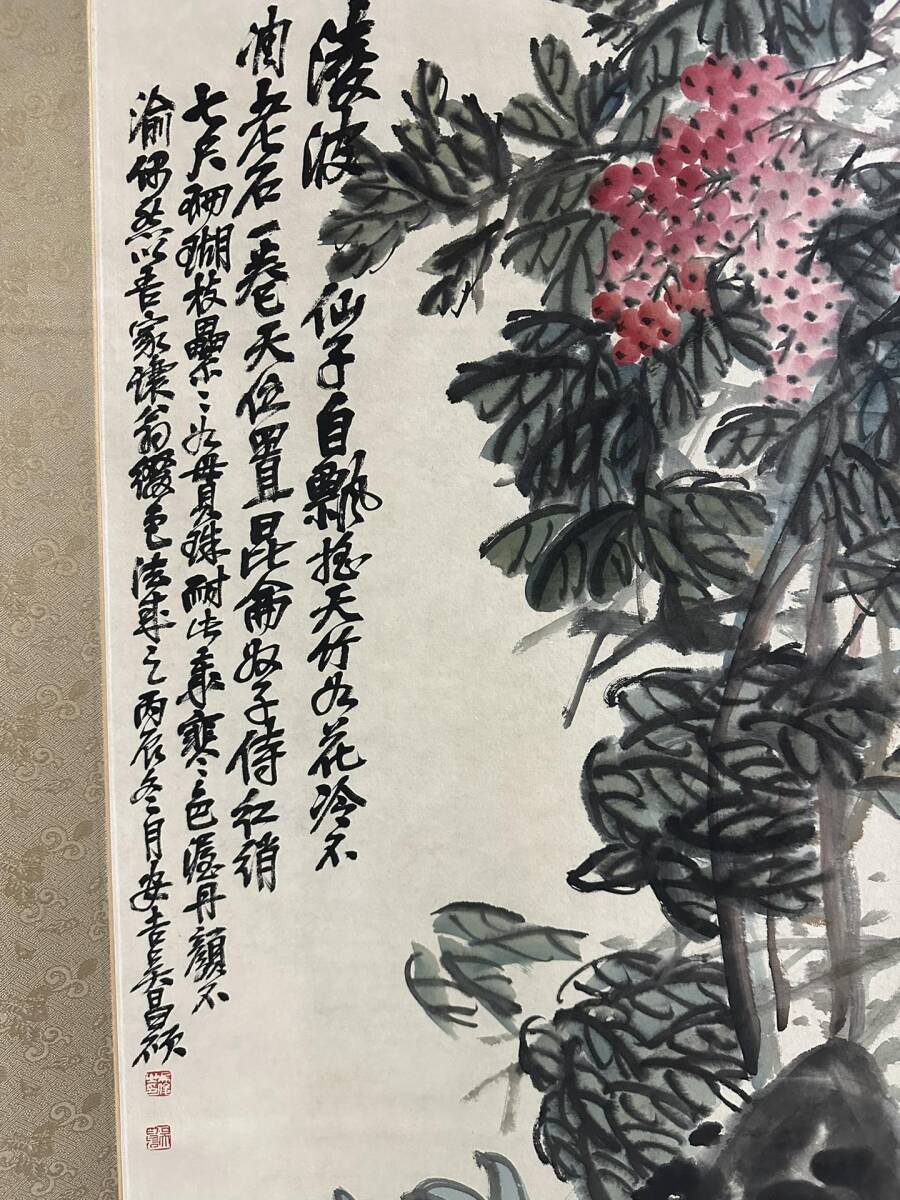 淩波仙子自飄搖天竹如花冷不
凋老石一卷天位置昆侖奴子侍紅綃
七尺珊瑚枝纍纍〻如貫珠耐此歲寒〻色渥丹顏不
渝師吾家讓翁設色法成之丙辰冬月安吉吳昌碩